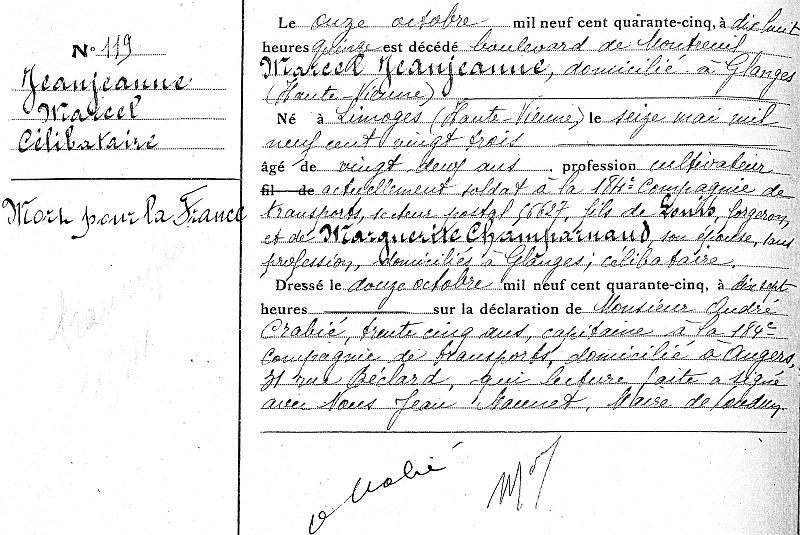 N° 119
Jeanjeanne
Marcel
Célibataire
Mort pour la France
Le onze octobre mil neuf cent quarante-cinq, à dix huit
heures quinze est décédé boulevard de Montreuil
Marcel Jeanjeanne, domicilié à Glanges
(Haute-Vienne)
Né à Limoges (Haute-Vienne) le seize mai mil
neuf cent vingt trois
âgé de vingt deux ans profession cultivateur
fil de actuellement soldat à la 184e Compagnie de
transports, secteur postal 56627, fils de Louis, forgeron,
et de Marguerite Champarnaud, son épouse, sans
profession, domiciliés à Glanges; célibataire.
Dressé le douze octobre mil neuf cent quarante-cinq, à dix sept
heures sur la déclaration de Monsieur André
Crabié, trente cinq ans, capitaine à la 184e
compagnie de transports, domicilié à Angers,
31 rue Béclard, qui lecture faite a signé
avec Nous Jean Mannet, Maire de Loudun